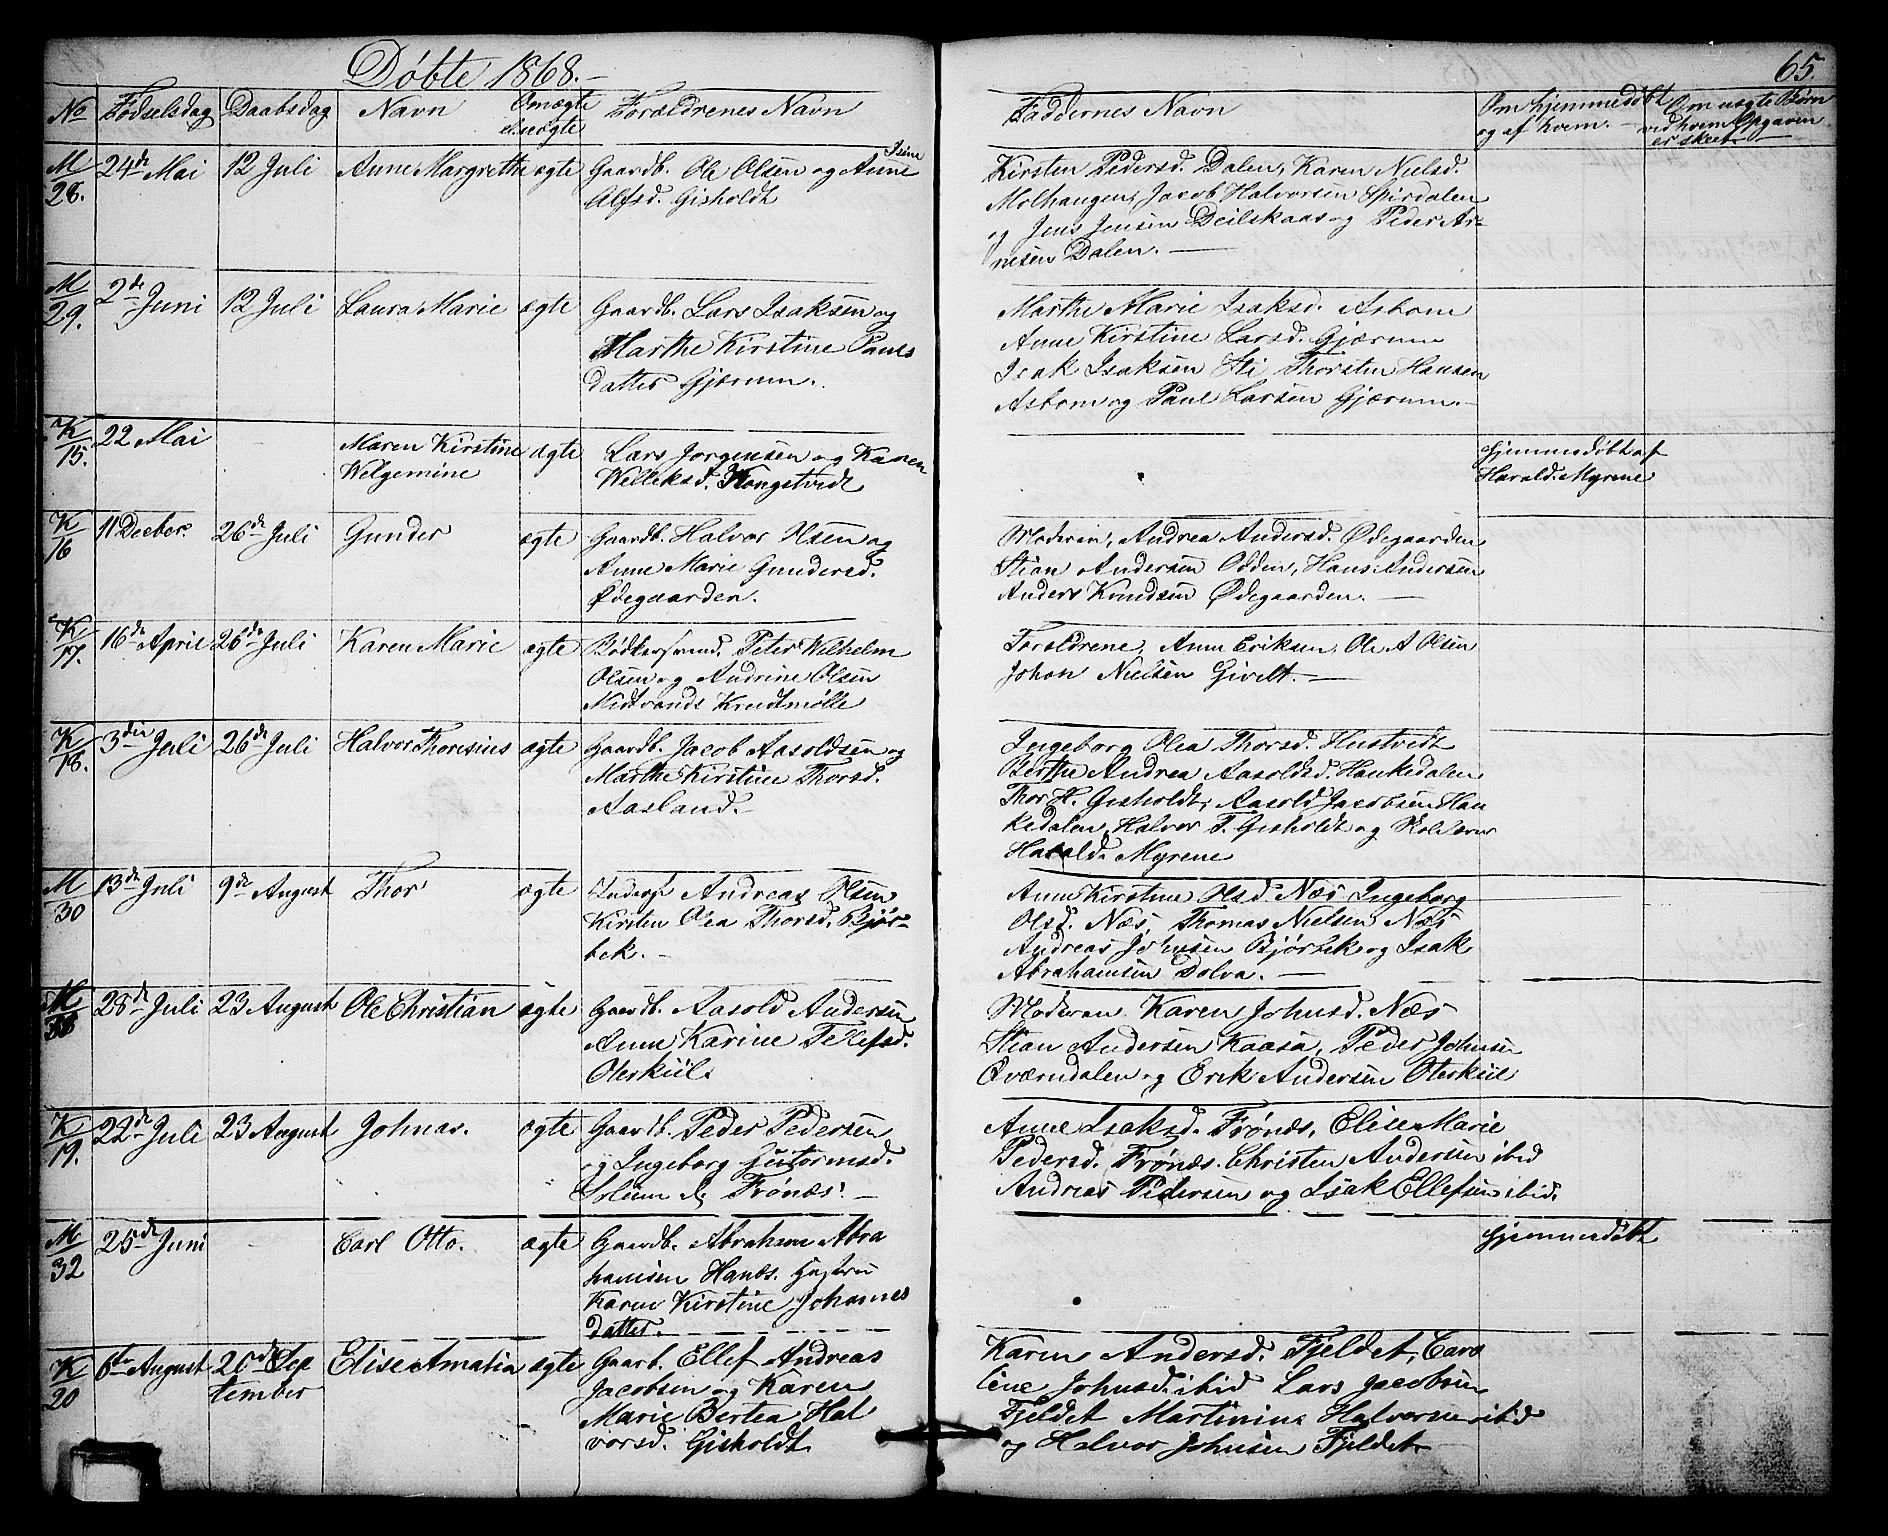 Døbte 1868.-
65.
No Fødselsdag Daabsdag Navn Om ægte Forældrenes Navn
Faddernes Navn Om hjemmedøbt Om uægte Børn
og af hvem. - ved hvem Opgaven
er skeet
M 24de Mai 12 Juli Anne Margrethe ægte Gaardb. Ole Olsen og Anne
28. Alfsd. Gisholdt
Kirsten Pedersd. Dalen, Karen Nielsd.
Molhaugen, Jacob Halvorsen Spirdalen
og Jens Jensen Deilskaas og Peder Ar-
nesen Dalen. -
M 2de Juni 12 Juli Laura Marie ægte Gaardb. Lars Isaksen og
29. Marthe Kirstine Pauls
datter Gjærum.
Marthe Marie Isaksd. Asbom
Anne Kirstine Larsd. Gjærum
Isak Isaksen Sti Thorsten Hansen
Asbom og Paul Larsen Gjærum. -
K 22 Mai - Maren Kirstine ægte Lars Jorgensen og Karen
15. Welgemine Wetleksd. Kongstvedt
Hjemmedøbt af
Harald Myrene
K 11 Decbr. 26de Juli Gunder ægte Gaardb. Halvor Olsen og
16 Anne Marie Gundersd.
Ødegaarden.
Moderen, Andrea Andersd. Ødegaarden
Stian Andersen Odden, Hans Andersen
Anders Knudsen Ødegaarden. -
K 16de April 26de Juli Karen Marie ægte Bødkersvend. Peter Wilhelm
17. Olsen og Andrine Olsen
Midtvands Krudtmølle
Forældrene, Anne Eriksen, Ole A Olsen
Johan Nielsen Givelt. -
K 3die Juli 26de Juli Halvor Thoresius ægte Gaardb. Jacob Aasoldsen og
18. Marthe Kirstine Thorsd.
Aasland. -
Ingeborg Olea Thorsd. Hustvedt
Berthe Andrea Aasoldsd. Haukedalen
Thor H. Gisholdt, Aasold Jacobsen Hau
kedalen, Halvor T. Gisholdt og Skolelærer
Harald Myrene
M 13de Juli 9de August Thor ægte Inders Andreas Olsen
30 Kirsten Olea Thorsd. Bjør-
bek. -
Anne Kirstine Olsd Næs Ingeborg
Olsd. Næs, Thomas Nielsen Næs
Andreas Johnsen Bjørbek og Isak
Abrahamsen Dolva. -
M 28de Juli 23 August Ole Christian ægte Gaardb. Aasold Andersen
Anne Karine Tellefsd.
Oterkiil.
Moderen Karen Johnsd. Næs
Stian Andersen Kaasa, Peder Johnsen
Qværndalen og Erik Andersen Oterkiil
K 22de Juli 23 August Johnas. ægte Gaardb. Peder Pedersen
19. og Ingeborg Guttormsd.
Solum & Frønæs. -
Anne Isaksd. Frønæs, Elise Marie
Pedersd. Frønæs. Christen Andersen ibid
Andreas Pedersen og Isak Ellefsen ibid.
M 25de Juni - Carl Otto. ægte Gaardb. Abraham Abra
32 hamsen Hanes. Hustru
Karen Kirstine Johannes
datter.
Hjemmedøbt
K 6te August 20de Sep Elise Amalia ægte Gaarb. Ellef Andreas
20 tember Jacobsen og Karen
Marie Bertea Hal
vorsd. Gisholdt
Karen Andersd. Fjeldet, Caro
line Johnsd. ibid Lars Jacobsen
Fjeldet Martinius Halvorsen ibid
og Halvor Johnsen Fjeldet